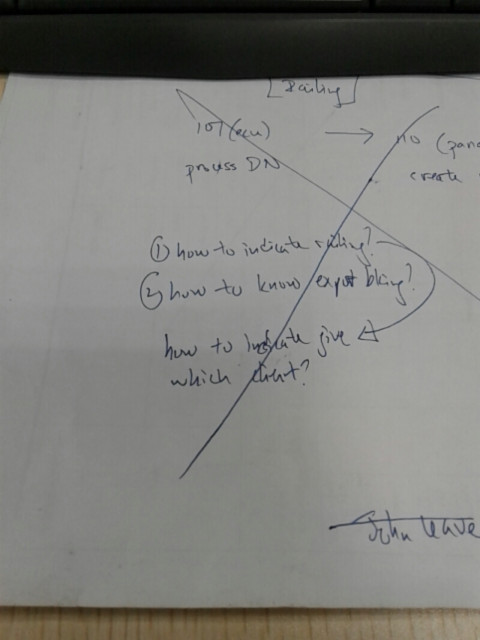 101 (ecu)
process DN
create
① how to indicate railing?
② how to know export bking?
how to indicate give
which client?
John leave